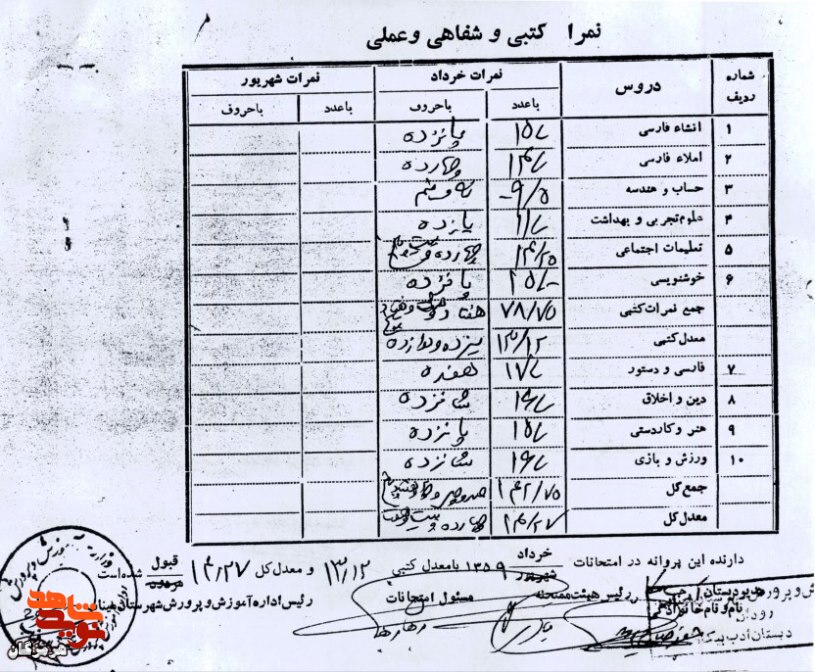 نمرا کتبی و شفاهی و عملی
شماره ردیف دروس نمرات خرداد نمرات شهریور
باعدد باحروف باعدد باحروف
۱ انشاء فارسی ۱۵/- پانزده
۲ املاء فارسی ۱۴/- چهارده
۳ حساب و هندسه ۹/۵- نه و نیم
۴ علوم تجربی و بهداشت ۱۱/- یازده
۵ تعلیمات اجتماعی ۱۴/۲۵ چهارده و بیست و پنج
۶ خوشنویسی ۱۵/- پانزده
جمع نمرات کتبی ۷۸/۷۵ هفتاد و هشت و هفتاد و پنج
معدل کتبی ۱۳/۱۲ سیزده و دوازده
۷ فارسی و دستور ۱۷/- هفده
۸ دین و اخلاق ۱۶/- شانزده
۹ هنر و کاردستی ۱۵/- پانزده
۱۰ ورزش و بازی ۱۶/- شانزده
جمع کل ۱۴۲/۷۵
معدل کل ۱۴/۲۷ چهارده و بیست و هفت
دارنده این پروانه در امتحانات خرداد شهریور ۱۳۵۹ با معدل کتبی ۱۳/۱۲ و معدل کل ۱۴/۲۷ قبول مردود شده است
مدیر دبستان رئیس هیئت ممتحنه مسئول امتحانات رئیس اداره آموزش و پرورش شهرستان
نام و نام خانوادگی
دبستان ادب
وزارت آموزش و پرورش
نوید شاهد